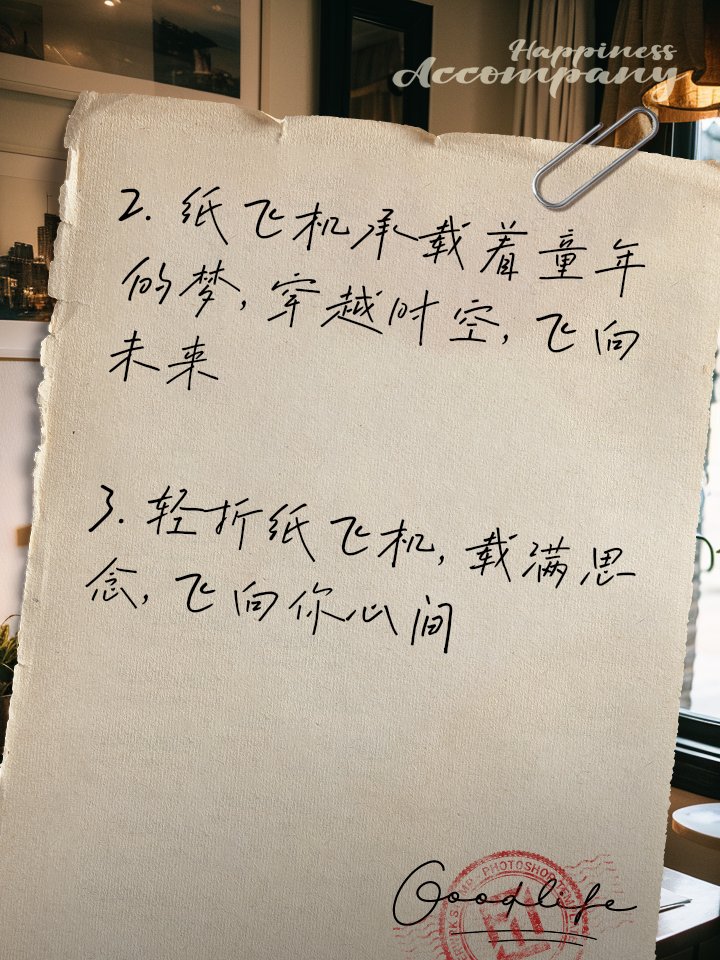 Happiness
Accompany
2. 纸飞机承载着童年
的梦, 穿越时空, 飞向
未来
3. 轻折纸飞机, 载满思
念, 飞向你心间
Goodlife